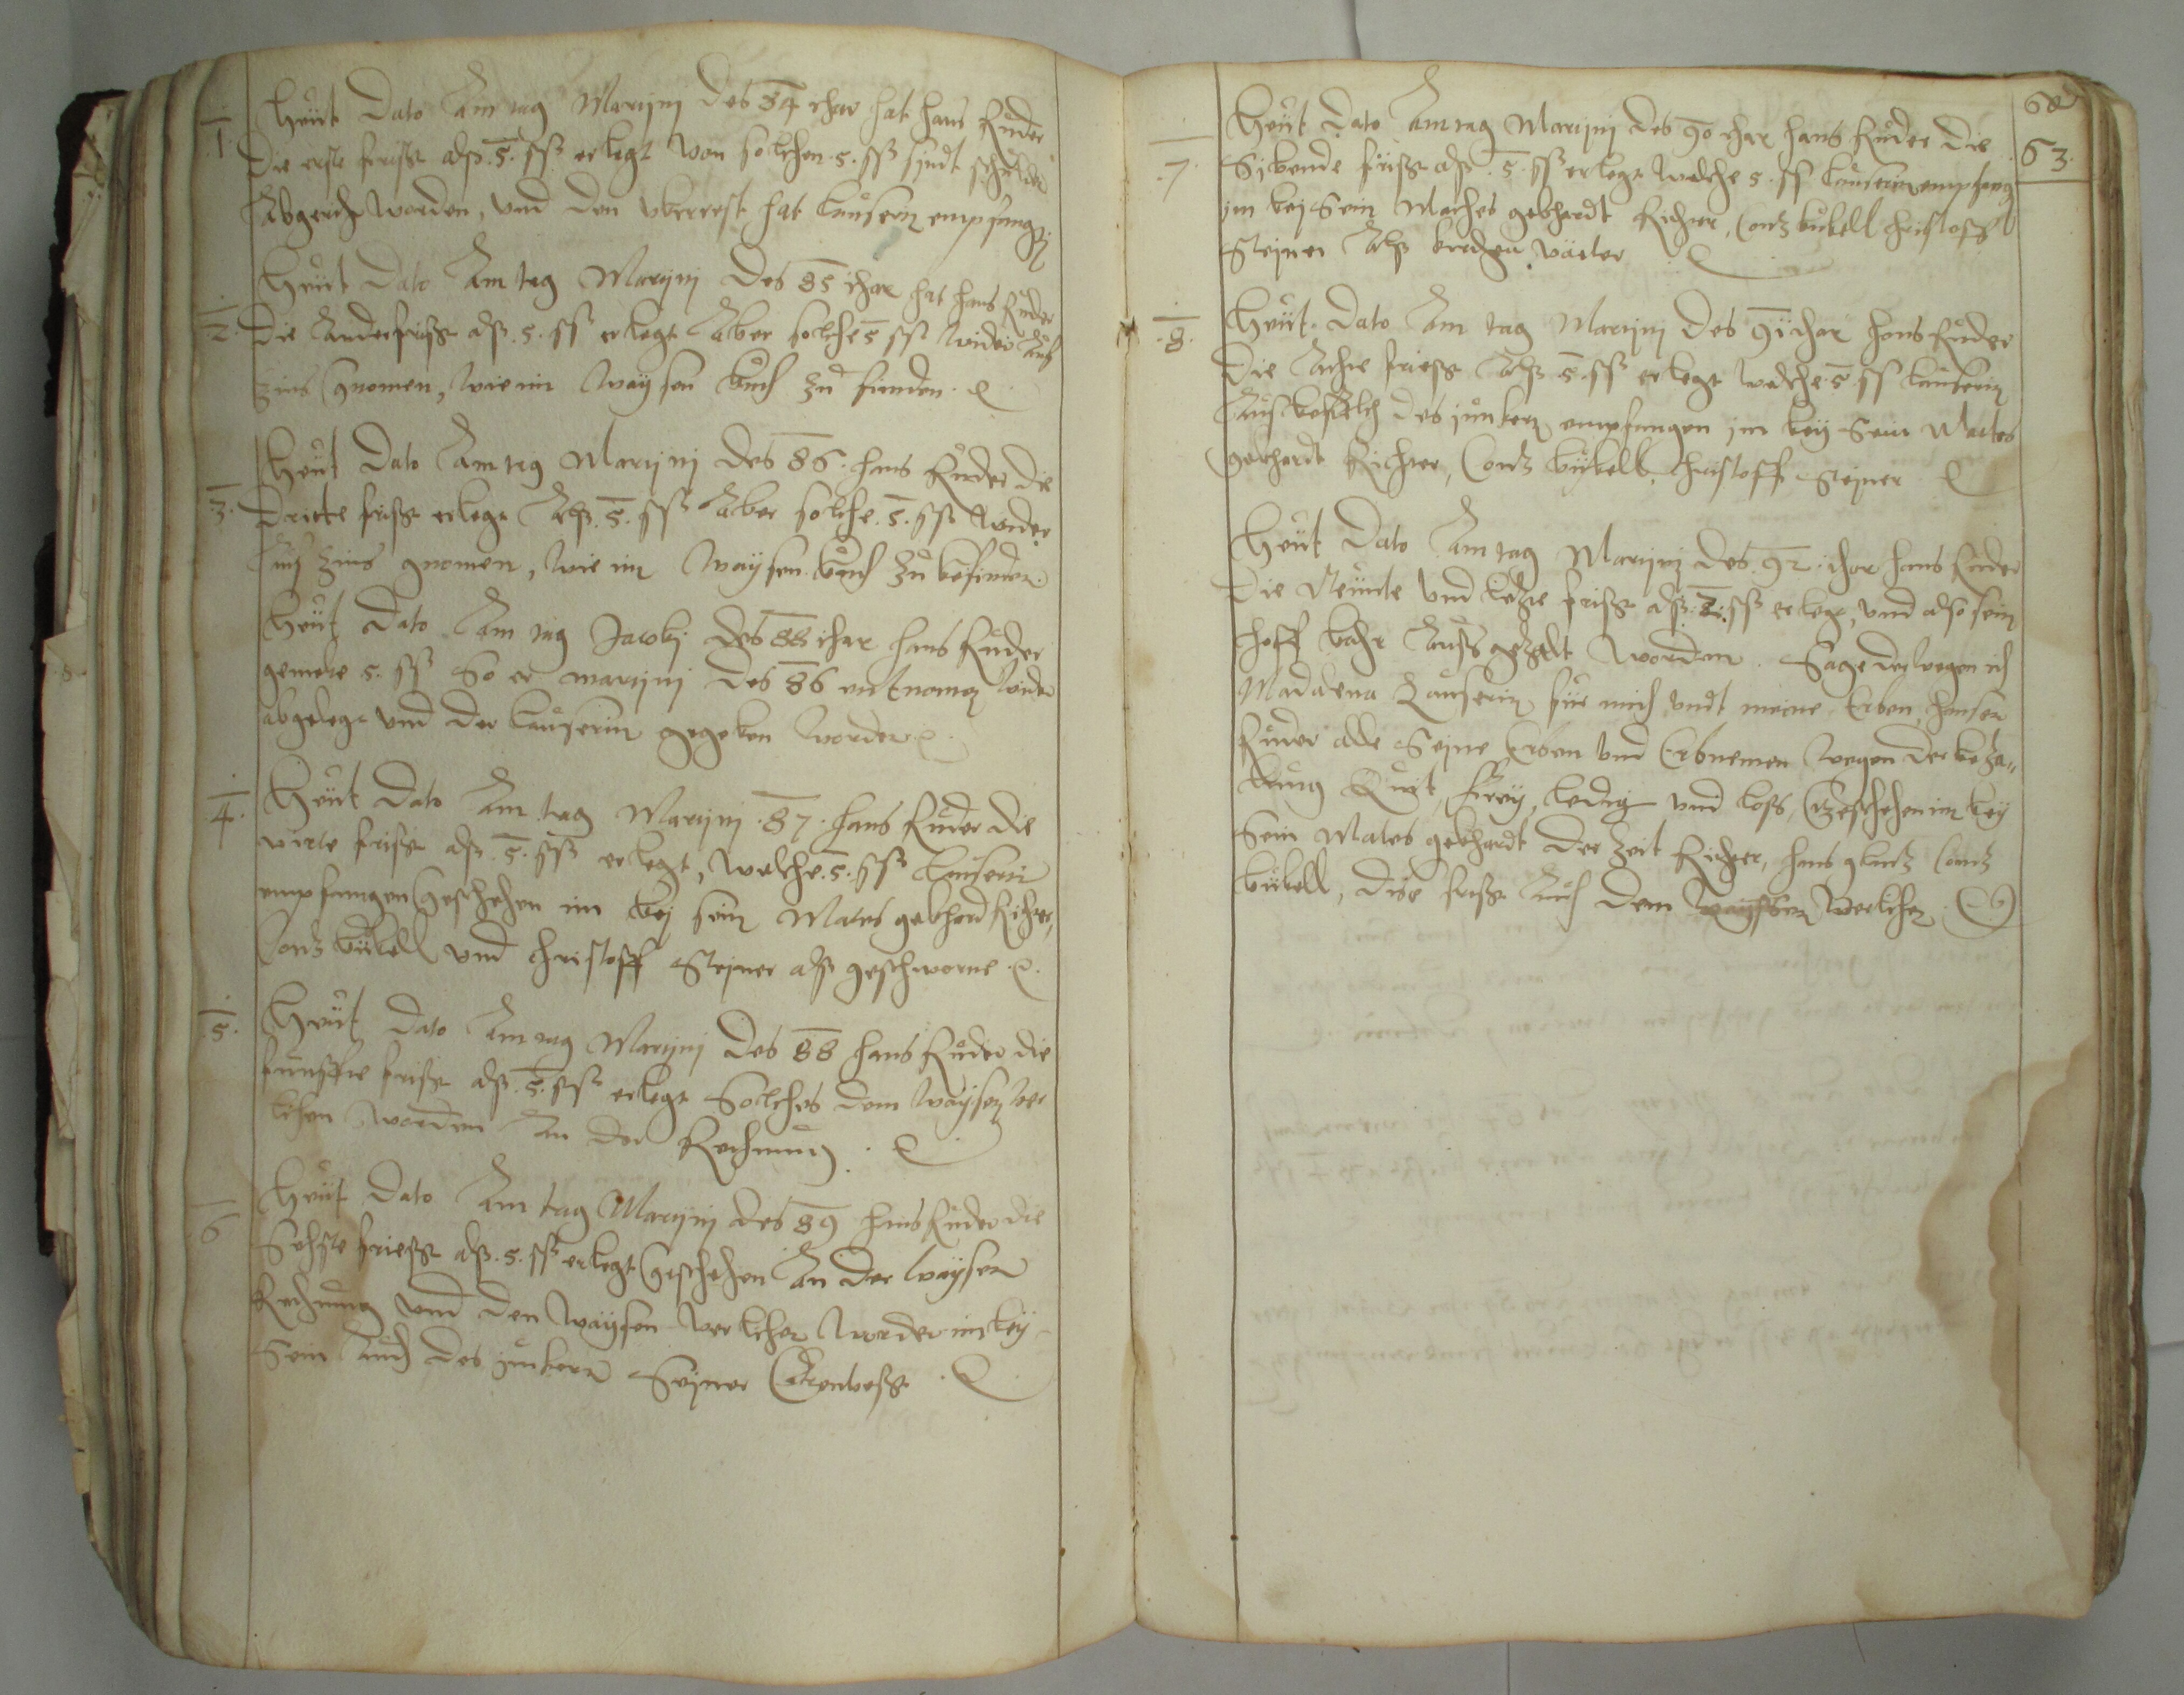 1. Heut Dato Am tag Martjnj des 84 ihar hat hans Ruder
Die erste frist alß .5. ßß erlegt von solchen .5. ßß sindt schulden
Abgericht worden, und den uberrest hat Lauserin empfangen
Heut Dato Am tag Martjnj des 85 ihar hat hans Ruder
2. Die Anderfrist alß .5. ßß erlegt Aber solche 5 ßß wider Auf
Zins gnomen, wie im Waysen buch zu finden.
Heut Dato Am tag Martjnj des 86. hans Ruder die
3. Dritte frist erlegt Alß .5. ßß Aber solche .5. ßß wider
Auf Zins gnomen, wie im Waysen buch zu befinden.
Heut Dato Am tag Jacobj des 88 ihar hans Ruder
gemelte 5. ßß So er martjnj des 86 entnomen wider
abgelegt und der Lauserin gegeben worden.
4. Heut Dato Am tag Martjnj .87. hans Ruder die
virte frist alß .5. ßß erlegt, welche .5. ßß Lauserin
empfangen geschehen im bej sein Mates gebhard Richter,
Contz bükell und Christoff Stejner alß geschworne.
5. Heut Dato Am tag Martjnj des 88 hans Ruder die
funffte frist alß .5. ßß erlegt Solches dem Waysen ver
lihen worden An der Rechnung.
6 Heut Dato Am tag Martjnj des 89 hans Ruder die
Sehste friest alß .5. ßß erlegt geschehen An der Waysen
Rechnung und den Waysen verlihen worden im bej
Sein Auch des junkern Sejner Ehrenvest.
63.
7. Heut Dato Am tag Martjnj des 90 ihar hans Ruder die
Sibende frist alß .5. ßß erlegt welche 5. ßß Lauserin empfang
im bej Sein Mathes gebhardt Richter, Contz bükell Christoff
Stejner Alß
8. Heut Dato Am tag Martjnj des 91 ihar hans Ruder
Die Achte friest Alß .5. ßß erlegt welche .5. ßß Lauserin
Auf befelch des junkern empfangen im bej Sein Mates
gebhardt Richter, Contz bükell, Christoff Stejner
Heut Dato Am tag Martjnj des .92. ihar hans Ruder
Die Neunte und letzte frist alß .2. ßß erlegt, und also sein
hoff bahr Auß gezalt worden. Sage deswegen ich
Madalena Lauserin für mich undt meine Erben hansen
Ruder alle Sejne Erben und Erbnemen wegen der beza„
lung Quit, frey, ledig und loß, Geschehen im bej
Sein Mates gebhardt der Zeit Richter, hans Contz
bükell, dise frist Auch dem Waysen verlihen